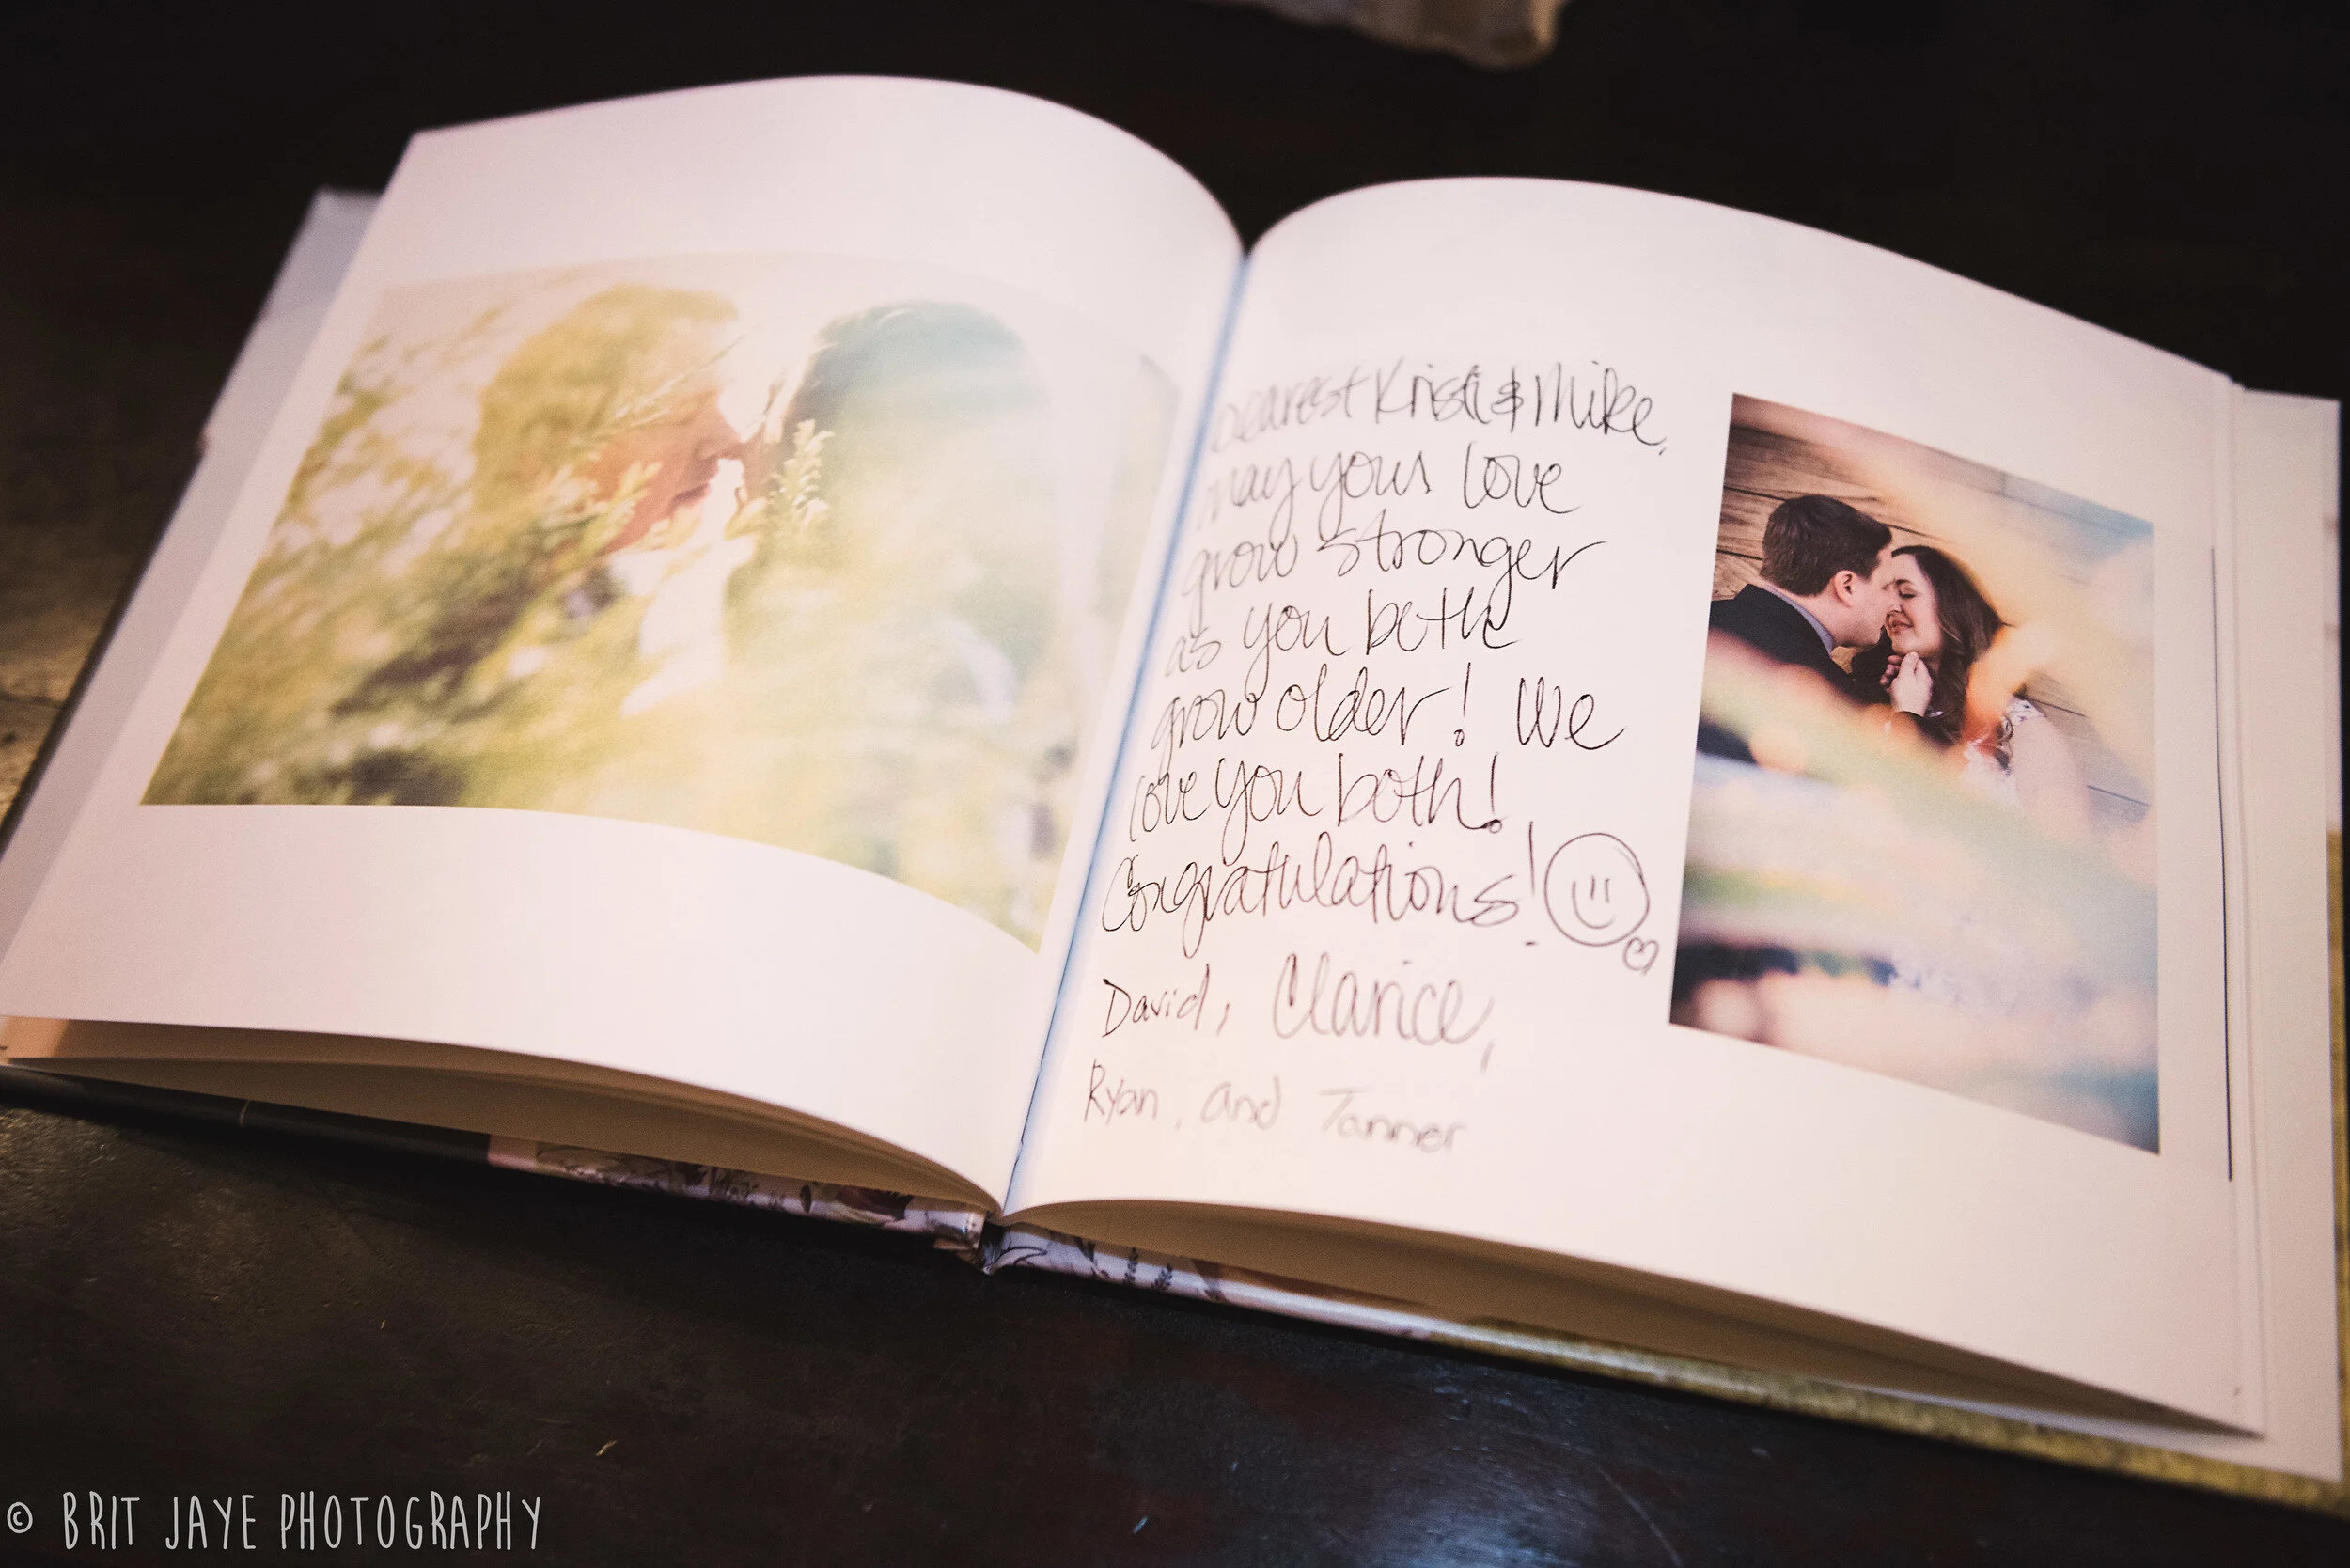 Dearest Kristi & Mike,
may your love
grow stronger
as you both
grow older! We
love you both!
Congratulations!
David, Clarice,
Ryan, and Tanner
© BRIT JAYE PHOTOGRAPHY